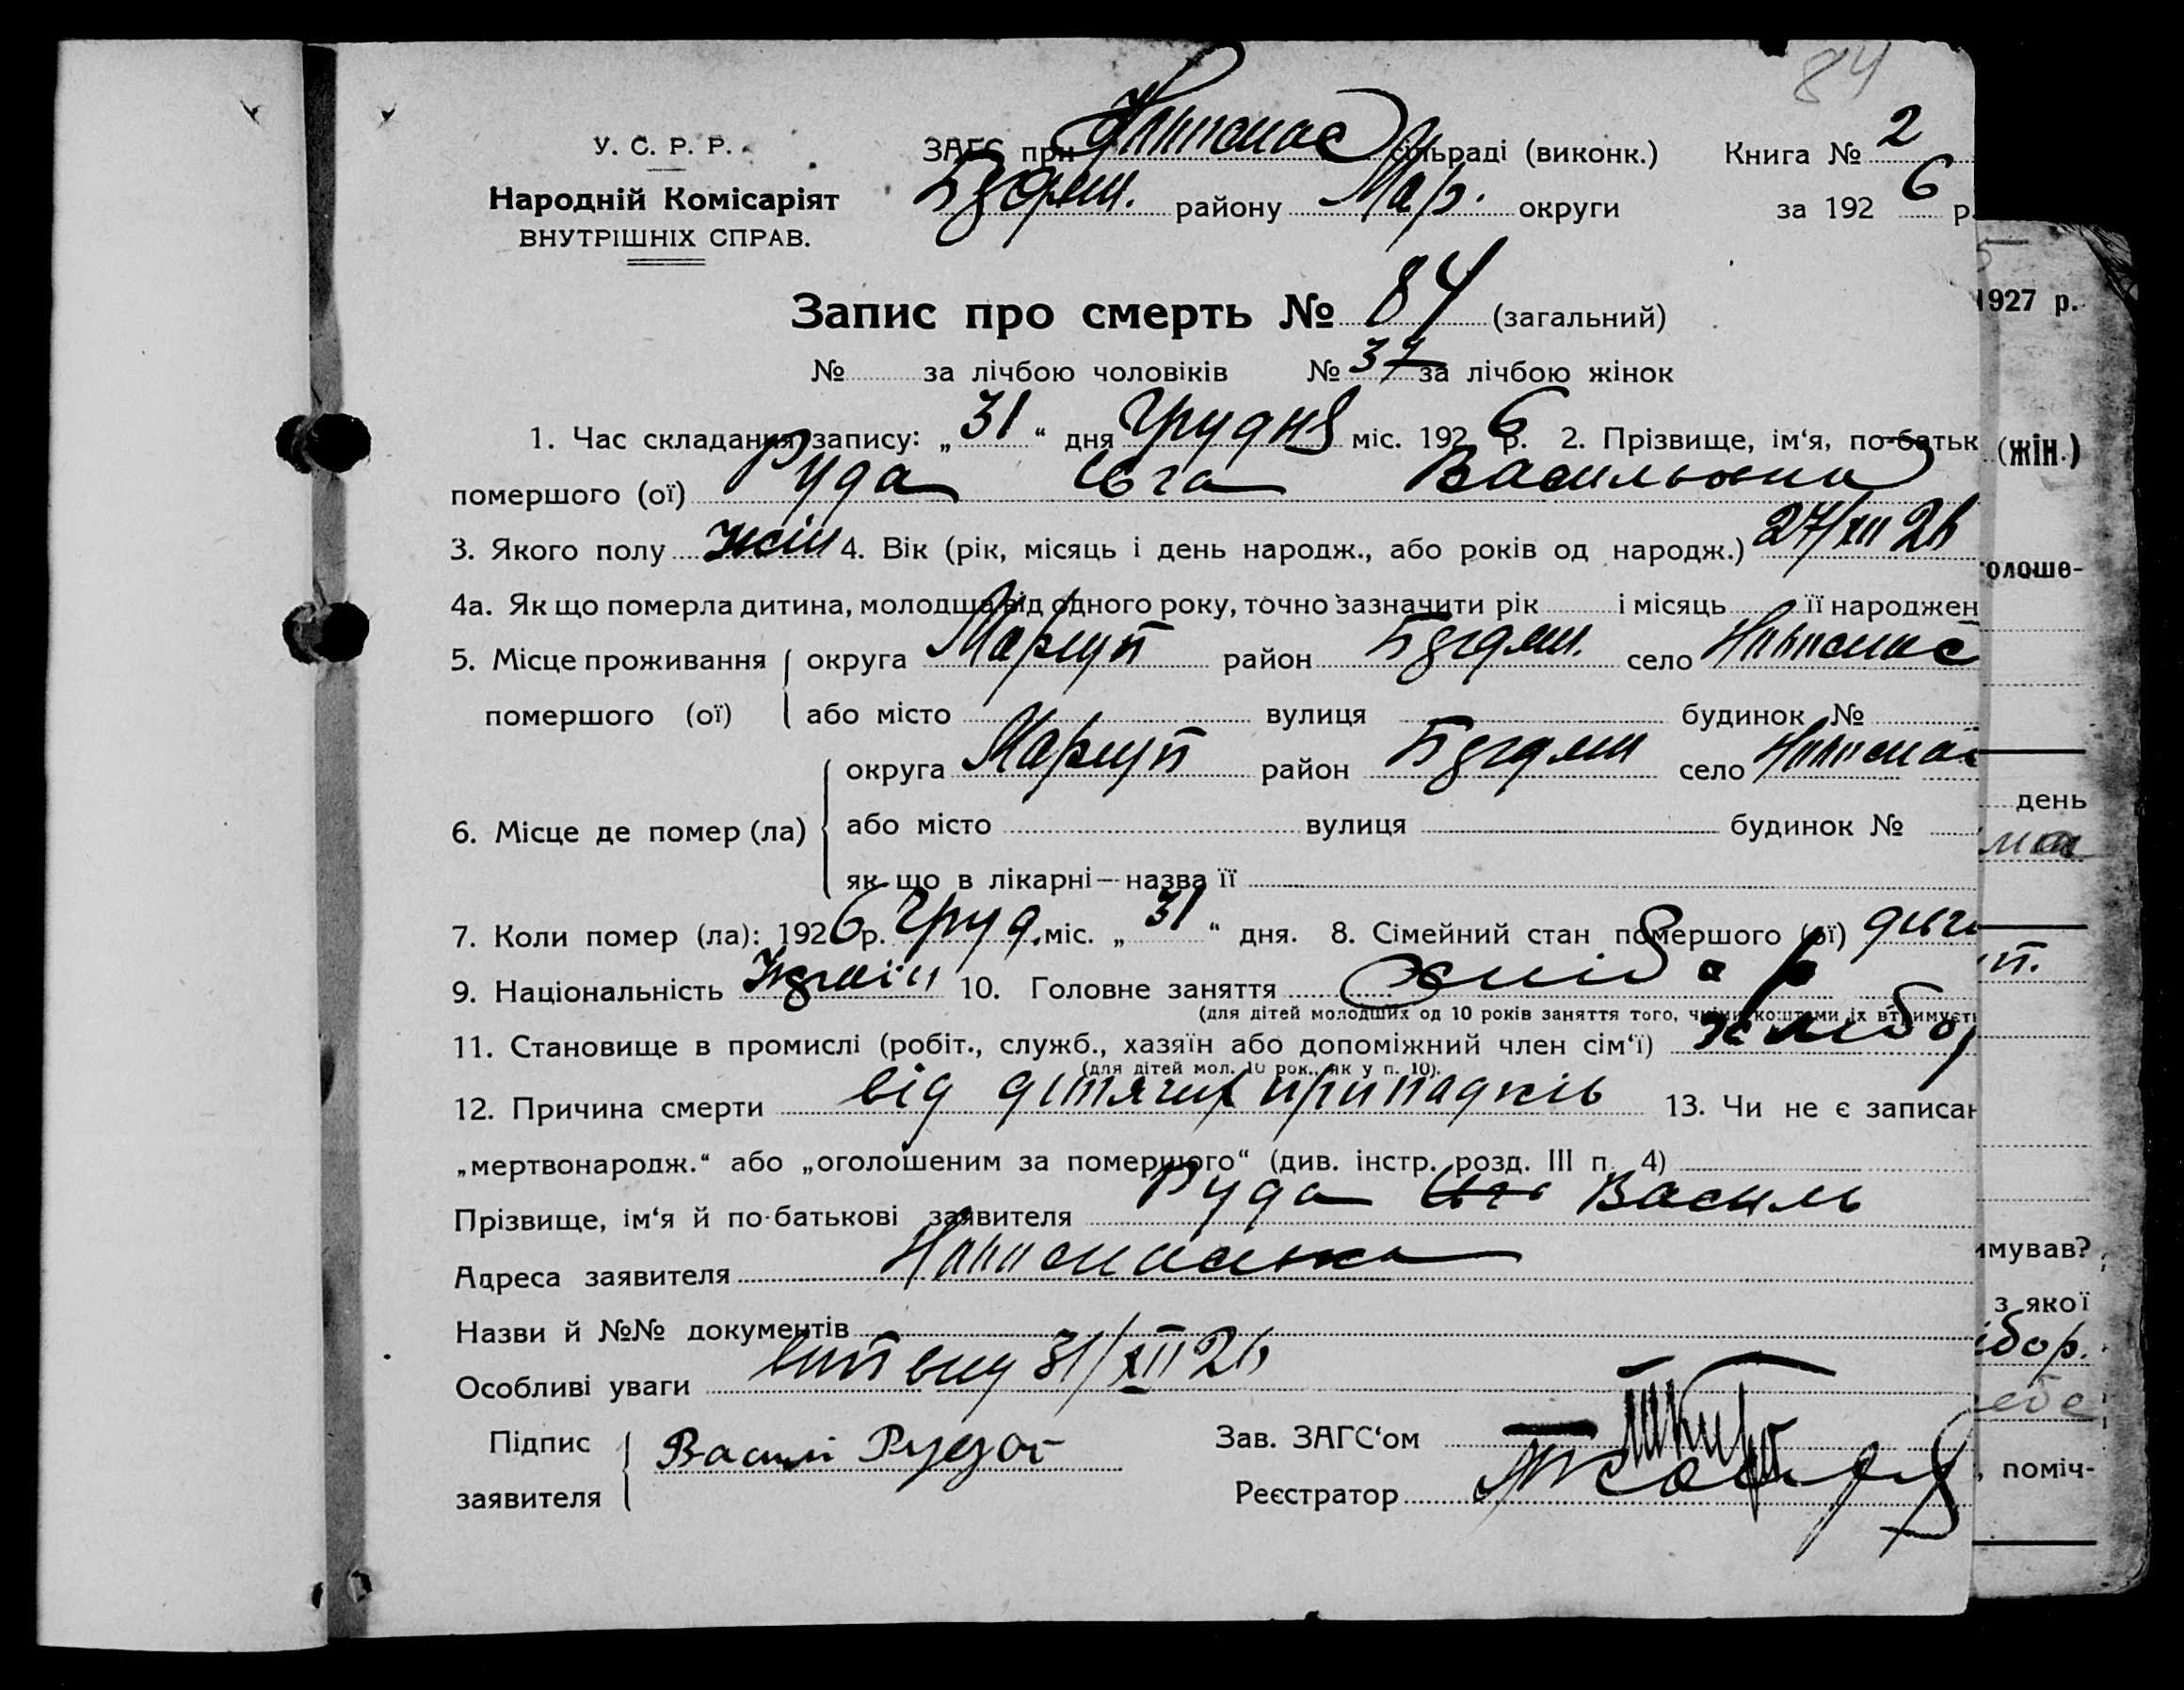 84
У. С. Р. Р.
Народній Комісаріят
ВНУТРІШНІХ СПРАВ.
ЗАГС при сільраді (виконк.) Книга № 2
району Мар. округи за 192 6 р.
Запис про смерть № 84 (загальний)
№ за лічбою чоловіків № 37 за лічбою жінок
1. Час складання запису: „ 31 “ дня Грудня міс. 192 6 р. 2. Прізвище, ім‘я, по-батьк
помершого (ої) Руда Васильовна
3. Якого полу жін 4. Вік (рік, місяць і день народж., або років од народж.) 27/XII 26
4а. Як що померла дитина, молодша від одного року, точно зазначити рік і місяць її народжен
5. Місце проживання округа Маріуп район село
помершого (ої) або місто вулиця будинок №
округа Маріуп район село
6. Місце де помер (ла) або місто вулиця будинок №
як що в лікарні — назва її
7. Коли помер (ла): 192 6 р. Груд. міс. „ 31 “ дня. 8. Сімейний стан помершого (ої)
9. Національність Україн 10. Головне заняття хліб
(для дітей молодших од 10 років заняття того, чиїми коштами їх втримуєть
11. Становище в промислі (робіт., служб., хазяїн або допоміжний член сім‘ї) хлібор
(для дітей мол. 10 рок., як у п. 10).
12. Причина смерти від дітячих припадків 13. Чи не є записан
„мертвонародж.“ або „оголошеним за помершого“ (див. інстр. розд. III п. 4)
Прізвище, ім‘я й по-батькові заявителя Руда Василь
Адреса заявителя
Назви й №№ документів
Особливі уваги 31/XII 26
Підпис заявителя Василь
Зав. ЗАГС‘ом
Реєстратор
1927 р.
(жін.)
олоше-
день
п.
имував?
з якої
ібор.
ебе
, поміч-